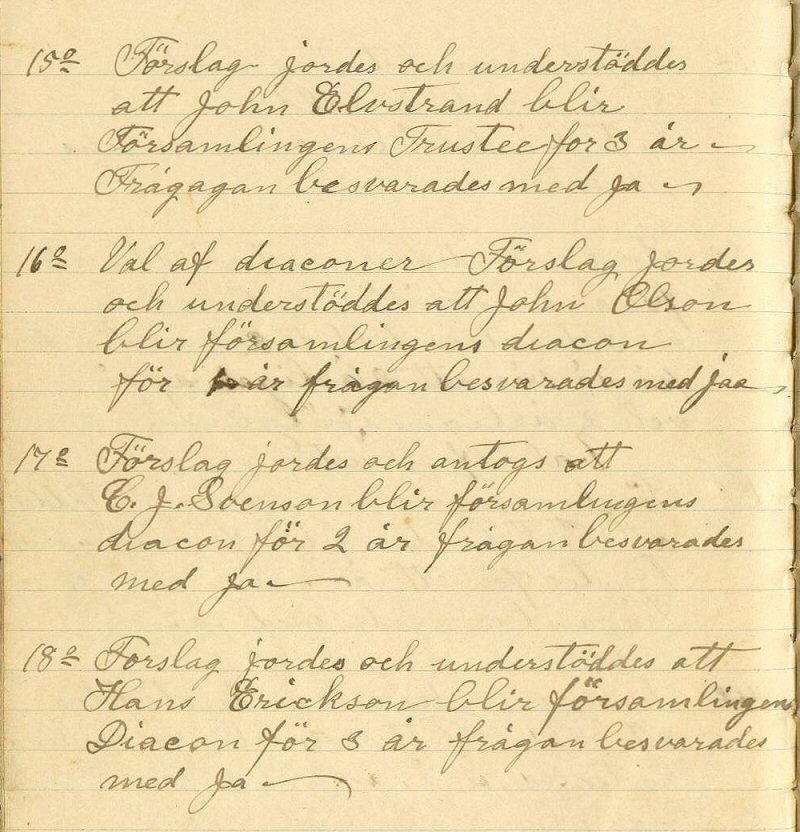 15o Förslag jordes och understöddes
att John Elvstrand blir
Församlingens Trustee for 3 år
Frågagan besvarades med Ja
16o Val af diaconer Förslag jordes
och understöddes att John Olson
blir församlingens diacon
för år frågan besvarades med jaa
17o Förslag jordes och antogs att
C. J. Svenson blir församlingens
diacon för 2 år frågan besvarades
med Ja
18o Forslag jordes och understöddes att
Hans Erickson blir församlingens
Diacon för 3 år frågan besvarades
med Ja